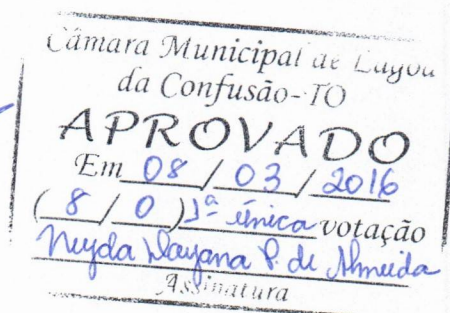 Câmara Municipal de Lagoa
da Confusão-TO
APROVADO
Em 08 / 03 / 2016
( 8 / 0 ) 1ª única votação
Neyda Dayana P. de Almeida
Assinatura